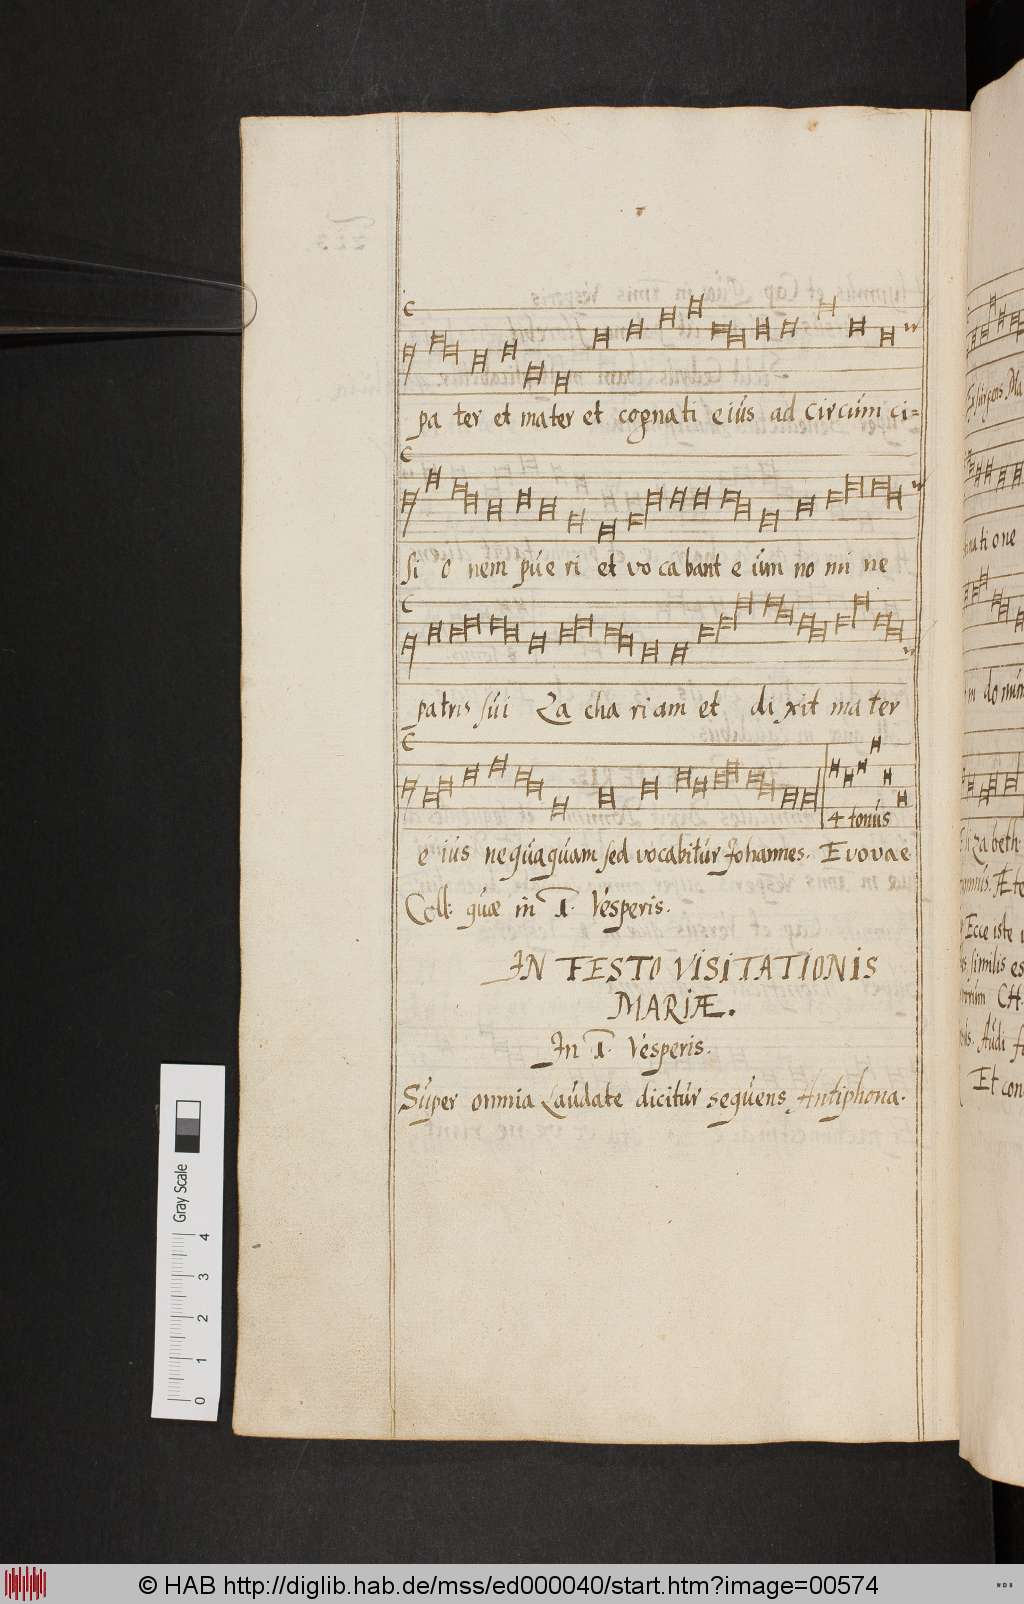 pa ter et mater et cognati eius ad circum ci=
si o nem pue ri et vo cabant e um no mi ne
patris sui Za cha riam et di xit ma ter
4 tonus
e ius nequaquam sed vocabitur Johannes. Evovae
Coll: quæ in 1. Vesperis.
IN FESTO VISITATIONIS
MARIÆ.
In 1. Vesperis.
Super omnia Laudate dicitur sequens Antiphona.
natione
zabeth:
Ecce iste
similis es
Audi
Et con
Gray Scale
0 1 2 3 4
© HAB http://diglib.hab.de/mss/ed000040/start.htm?image=00574